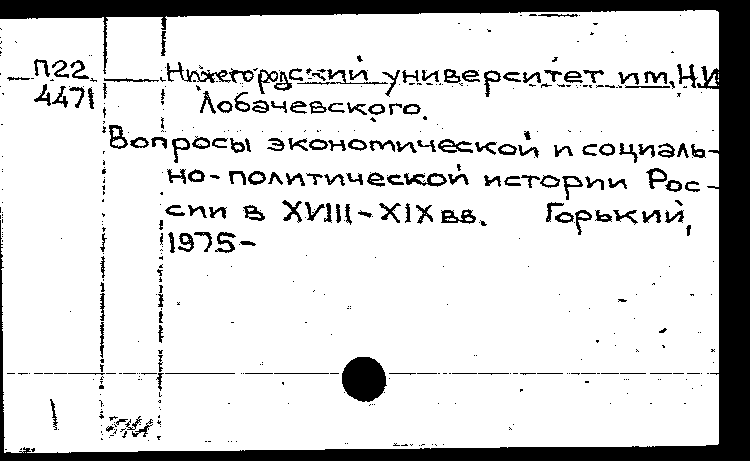 П22
4471
Нижегородский университет им. Н.И
Лобачевского.
Вопросы экономической и социаль-
но-политической истории Рос-
сии в XVIII-XIX вв. Горький,
1975-